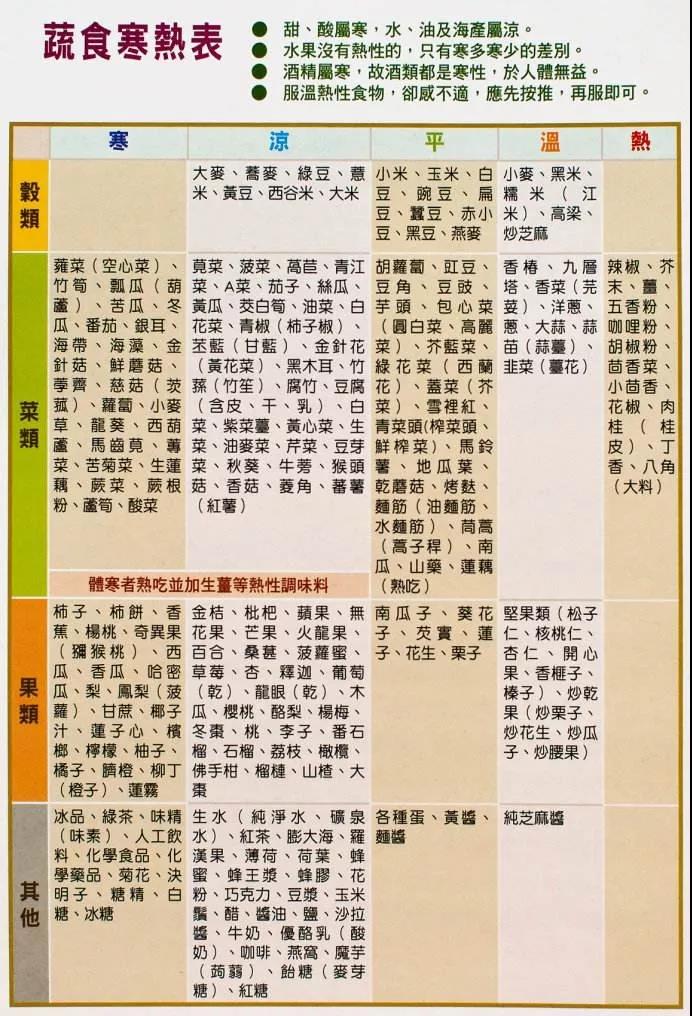 蔬食寒熱表
● 甜、酸屬寒，水、油及海產屬涼。
● 水果沒有熱性的，只有寒多寒少的差別。
● 酒精屬寒，故酒類都是寒性，於人體無益。
● 服溫熱性食物，卻感不適，應先按推，再服即可。
寒
涼
平
溫
熱
穀類
大麥、蕎麥、綠豆、薏
米、黃豆、西谷米、大米
小米、玉米、白
豆、豌豆、扁
豆、蠶豆、赤小
豆、黑豆、燕麥
小麥、黑米、
糯米（江
米）、高梁、
炒芝麻
菜類
蕹菜（空心菜）、
竹筍、瓢瓜（葫
蘆）、苦瓜、冬
瓜、番茄、銀耳、
海帶、海藻、金
針菇、鮮蘑菇、
荸薺、慈菇（茨
菰）、蘿蔔、小麥
草、龍葵、西葫
蘆、馬齒莧、蓴
菜、苦菊菜、生蓮
藕、蕨菜、蕨根
粉、蘆筍、酸菜
莧菜、菠菜、萵苣、青江
菜、A菜、茄子、絲瓜、
黃瓜、茭白筍、油菜、白
花菜、青椒（柿子椒）、
苤藍（甘藍）、金針花
（黃花菜）、黑木耳、竹
蓀（竹笙）、腐竹、豆腐
（含皮、干、乳）、白
菜、紫菜薹、黃心菜、生
菜、油麥菜、芹菜、豆芽
菜、秋葵、牛蒡、猴頭
菇、香菇、菱角、蕃薯
（紅薯）
胡蘿蔔、豇豆、
豆角、豆豉、
芋頭、包心菜
（圓白菜、高麗
菜）、芥藍菜、
綠花菜（西蘭
花）、蓋菜（芥
菜）、雪裡紅、
青菜頭(榨菜頭、
鮮榨菜)、馬鈴
薯、地瓜葉、
乾蘑菇、烤麩、
麵筋（油麵筋、
水麵筋）、茼蒿
（蒿子稈）、南
瓜、山藥、蓮藕
（熟吃）
香椿、九層
塔、香菜（芫
荽）、洋蔥、
蔥、大蒜、蒜
苗（蒜薹）、
韭菜（薹花）
辣椒、芥
末、薑、
五香粉、
咖哩粉、
胡椒粉、
茴香菜、
小茴香、
花椒、肉
桂（桂
皮）、丁
香、八角
（大料）
體寒者熟吃並加生薑等熱性調味料
果類
柿子、柿餅、香
蕉、楊桃、奇異果
（獼猴桃）、西
瓜、香瓜、哈密
瓜、梨、鳳梨（菠
蘿）、甘蔗、椰子
汁、蓮子心、檳
榔、檸檬、柚子、
橘子、臍橙、柳丁
（橙子）、蓮霧
金桔、枇杷、蘋果、無
花果、芒果、火龍果、
百合、桑葚、菠蘿蜜、
草莓、杏、釋迦、葡萄
（乾）、龍眼（乾）、木
瓜、櫻桃、酪梨、楊梅、
冬棗、桃、李子、番石
榴、石榴、荔枝、橄欖、
佛手柑、榴槤、山楂、大
棗
南瓜子、葵花
子、芡實、蓮
子、花生、栗子
堅果類（松子
仁、核桃仁、
杏仁、開心
果、香榧子、
榛子）、炒乾
果（炒栗子、
炒花生、炒瓜
子、炒腰果）
其他
冰品、綠茶、味精
（味素）、人工飲
料、化學食品、化
學藥品、菊花、決
明子、糖精、白
糖、冰糖
生水（純淨水、礦泉
水）、紅茶、膨大海、羅
漢果、薄荷、荷葉、蜂
蜜、蜂王漿、蜂膠、花
粉、巧克力、豆漿、玉米
鬚、醋、醬油、鹽、沙拉
醬、牛奶、優酪乳（酸
奶）、咖啡、燕窩、魔芋
（蒟蒻）、飴糖（麥芽
糖）、紅糖
各種蛋、黃醬、
麵醬
純芝麻醬